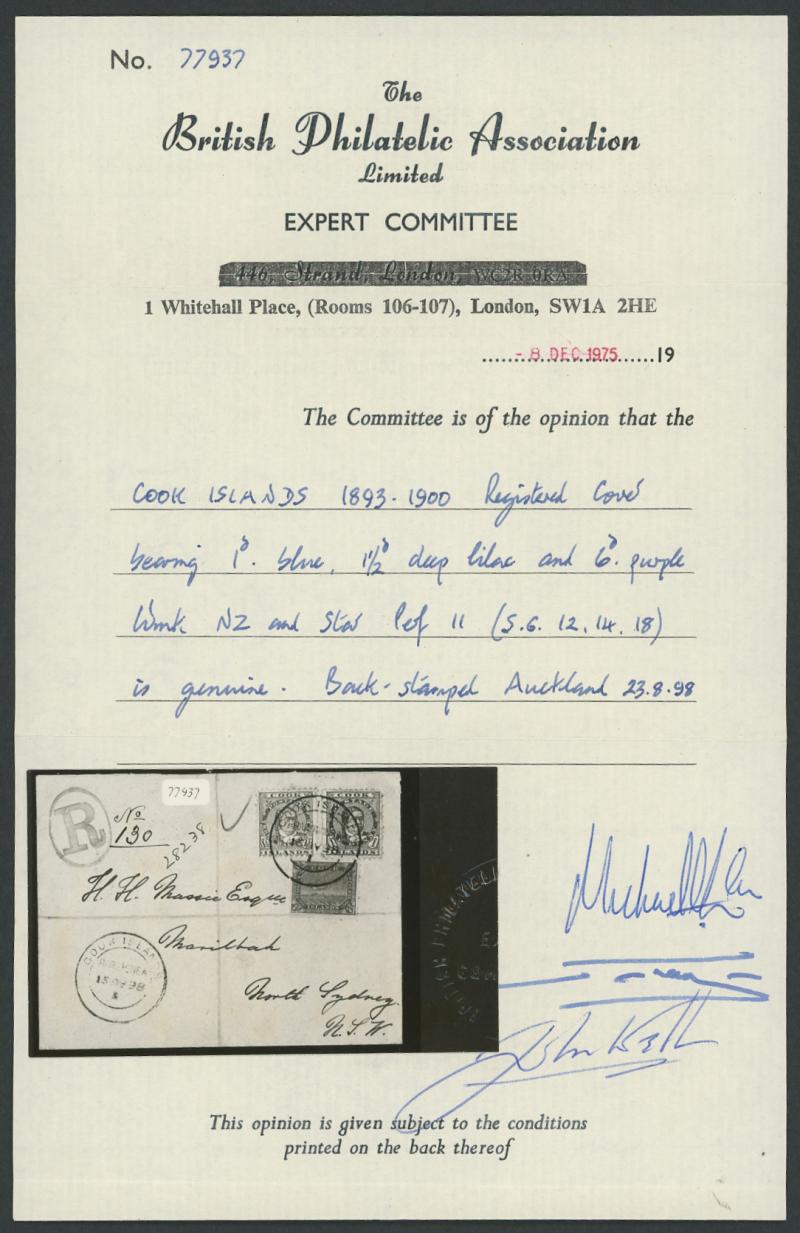 No. 77937
The
British Philatelic Association
Limited
EXPERT COMMITTEE
446, Strand, London, WC2R 0RA
1 Whitehall Place, (Rooms 106-107), London, SW1A 2HE
- 8 DEC 1975 19
The Committee is of the opinion that the
COOK ISLANDS 1893-1900 Registered Cover
bearing 1d. blue, 1½d deep lilac and 6d. purple
Wmk NZ and Star Perf 11 (S.G. 12, 14, 18)
is genuine. Back-stamped Auckland 23.8.98
77937
R
No
130
28238
COOK
ISLANDS
COOK
ISLANDS
H. H. Massie Esque
North Sydney.
N.S.W.
COOK ISLAN
98
BRITISH PHILATELI
John
This opinion is given subject to the conditions
printed on the back thereof